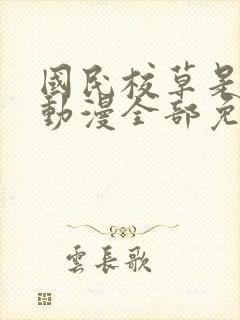 國民校草是
動漫全部免
雲長歌